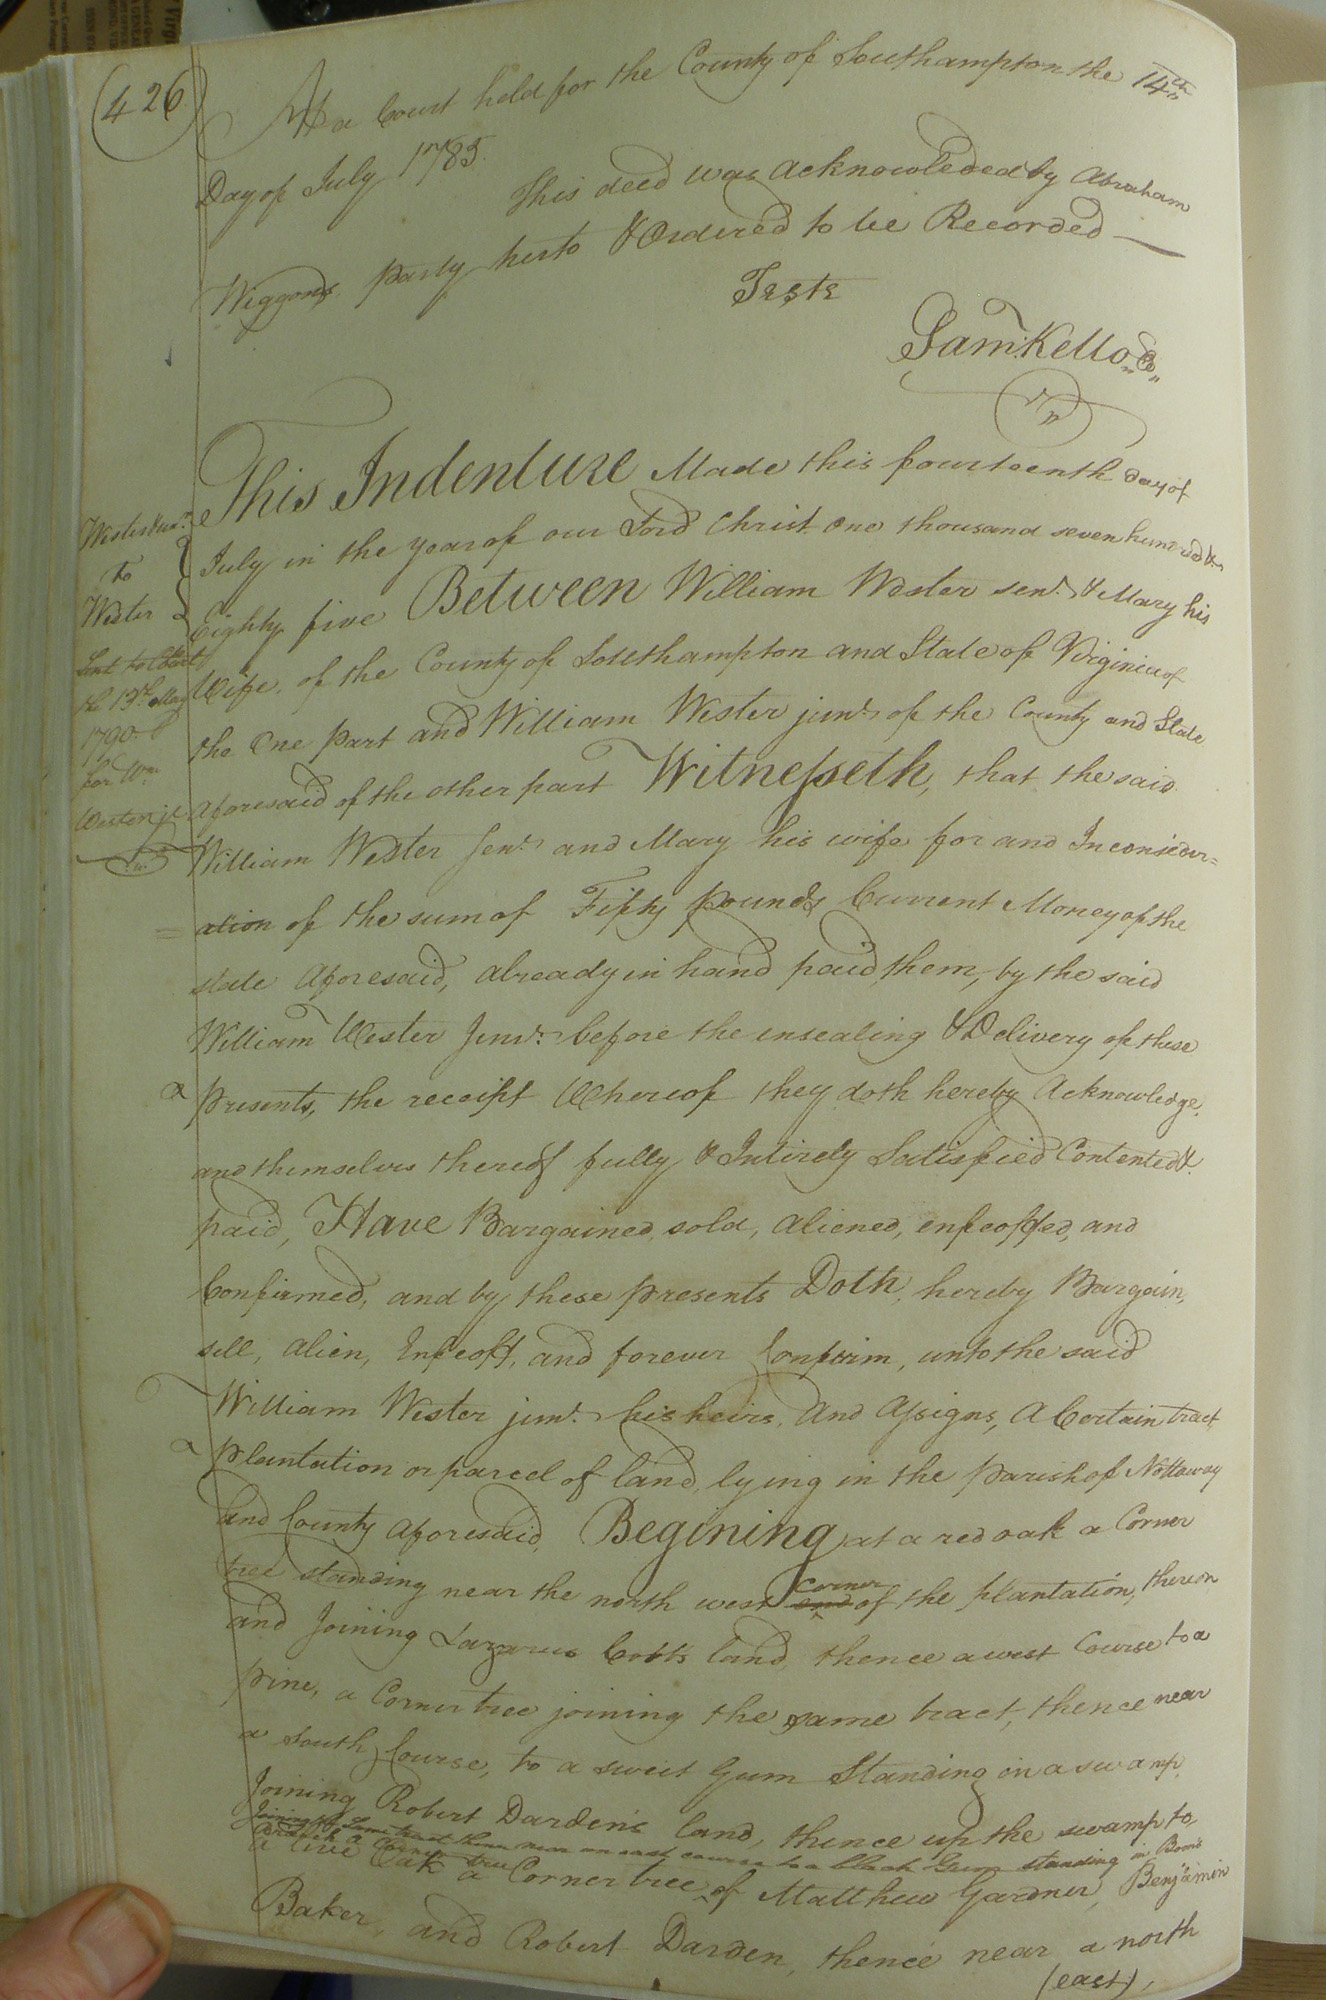 (426)
At a Court held for the County of Southampton the 14th
Day of July 1785.
This deed was acknowleded by Abraham
Wiggons party herto & Ordered to be Recorded
Teste
Saml Kello C
Wester Senr.
to
Wester
Sent to
the 13th May
1790.
for Wm
Wester jr
This Indenture Made this fourteenth day of
July in the year of our Lord Christ one thousand seven hundred &
Eighty five Between William Wester senr. & Mary his
Wife, of the County of Southampton and State of Virginia of
the One part and William Wester junr. of the County and State
aforesaid of the other part Witnesseth, that the said
William Wester Senr. and Mary his wife for and In consider=
=ation of the sum of Fifty pounds Current Money of the
state aforesaid, already in hand paid them, by the said
William Wester Junr. before the ensealing & Delivery of these
presents, the receipt Whereof they doth hereby Acknowledge,
and themselves thereof fully & Intirely Satisfied Contented &
paid, Have Bargained, sold, aliened, enfeoffed, and
Confirmed, and by these presents Doth, hereby Bargain,
sell, alien, Enfeoff, and forever Confirm, unto the said
William Wester junr. his heirs, And Assigns, A Certain tract
plantation or parcel of land, lying in the parish of Nottoway
and County aforesaid, Begining at a red oak a Corner
tree standing near the north west end corner of the plantation, thereon
and Joining Lazarus Cobb's land, thence a west Course to a
pine, a Corner tree joining the same tract, thence near
a south Course, to a sweet Gum Standing in a swamp
Joining Robert Darden's land, thence up the swamp to
Joining the same tract thence near an east course to a black Gum standing in Boon's
Branch a Corner tree
a live Oak a Corner tree of Matthew Gardner, Benjamin
Baker, and Robert Darden, thence near a north
(east),